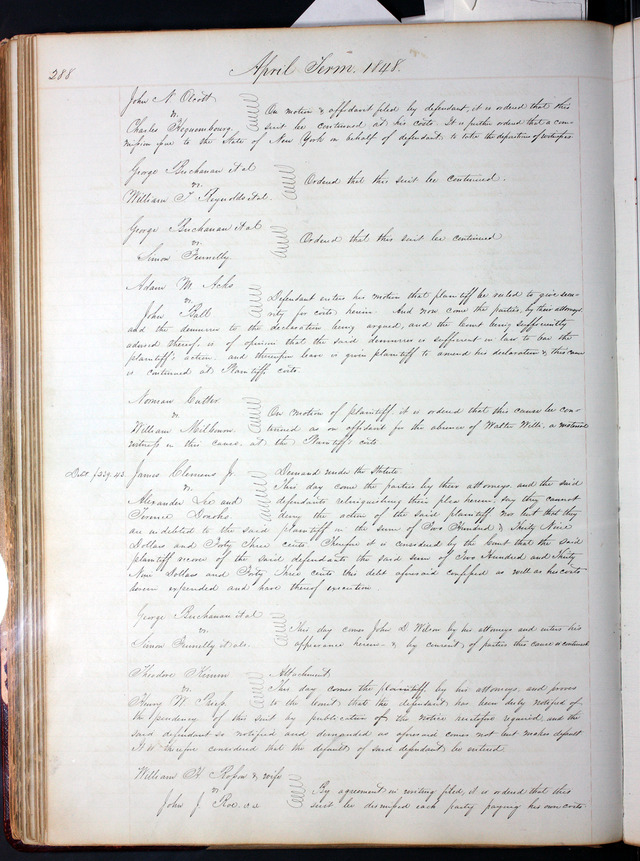 288
April Term. 1848.
John N. Olcott
vs.
Charles Hequembourg
On motion & affidavit filed by defendant, it is ordered that this
suit be continued at his costs. It is further ordered that a com-
mission issue to the State of New York on behalf of defendant to take the depositions of witnesses
George Buchanan et al
vs.
William T. Reynolds et al.
Ordered that this suit be continued.
George Buchanan et al
vs.
Simon Funnelly
Ordered that this suit be continued
Adam M. Acks
vs.
John Ball
Defendant enters his motion that plaintiff be ruled to give secu-
rity for costs herein. And now come the parties, by their attorneys
and the demurrer to the declaration being argued, and the Court being sufficiently
advised thereof, is of opinion that the said demurrer is sufficient in law to bar the
plaintiff's action. and thereupon leave is given plaintiff to amend his declaration & this cause
is continued at Plaintiff's costs.
Norman Cutter
vs
William Milburn
On motion of plaintiff it is ordered that this cause be con-
tinued as on affidavit for the absence of Walter Willis, a material
witness in this cause, at the Plaintiff's costs.
Debt. $239.43.
James Clemens Jr
vs.
Alexander Lee and
Terence
Demand under the Statute
This day come the parties by their attorneys, and the said
defendants relinquishing their plea herein say they cannot
deny the action of the said plaintiff nor but that they
are indebted to the said plaintiff in the sum of Two Hundred & Thirty Nine
Dollars and Forty Three cents. Therefore it is considered by the Court that the said
plaintiff recover of the said defendants the said sum of Two Hundred and Thirty
Nine Dollars and Forty Three cents this debt aforesaid confessed as well as his costs
herein expended and have thereof execution.
George Buchanan et al
vs.
Simon Funnelly et als.
This day comes John D. Wilson by his attorneys and enters his
appearance herein. & by consent of parties this cause is continued
Theodore
vs.
Henry W.
Attachment.
This day comes the plaintiff, by his attorneys, and proves
to the Court that the defendant has been duly notified of
the pendency of this suit by publication of the notice required, and the
said defendant so notified and demanded as aforesaid comes not but makes default
It is therefore considered that the default of said defendant be entered.
William H. Rosson & wife
vs
John J. Roe. ex
By agreement in writing filed, it is ordered that this
suit be dismissed each party paying his own costs